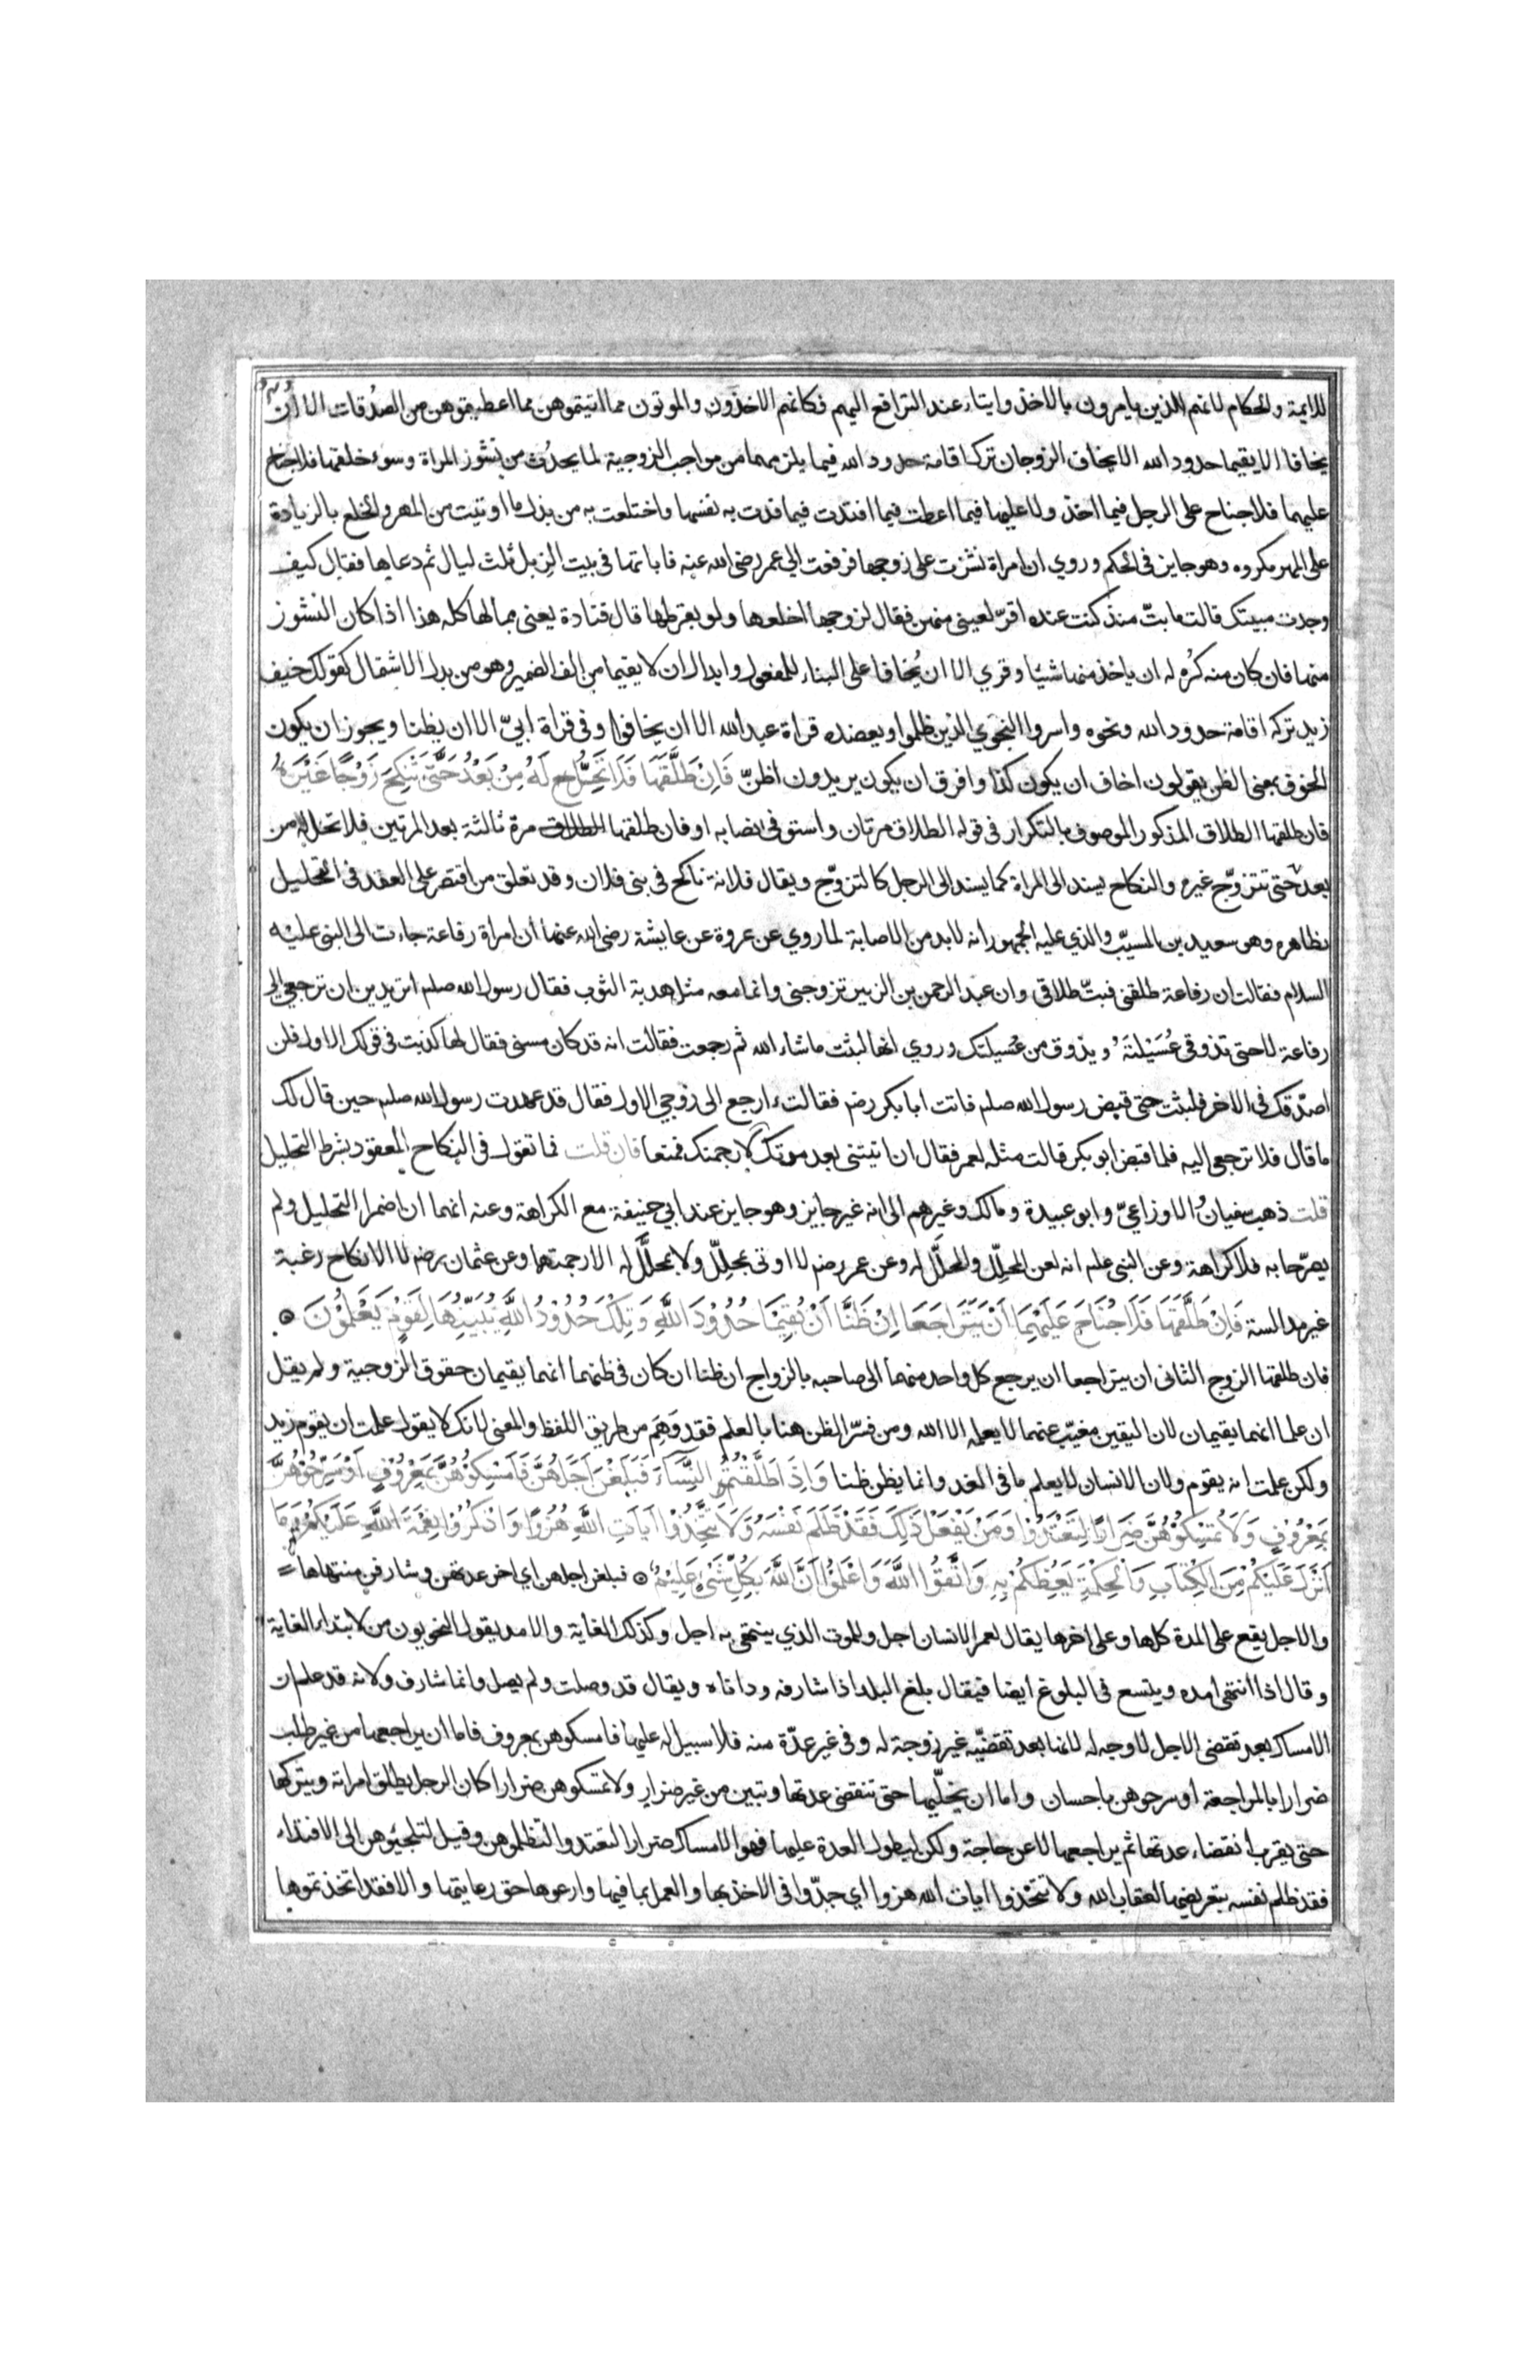 للائمة والحكام لانهم الذين يامرون بالاخذ وايتاء عند الترافع اليهم فكانهم الاخذون والموتون مما اتيتموهن مما اعطيتموهن من الصدُقات الا ان
يخافا الا يقيما حدود الله الا يخاف الزوجان ترك اقامة حدود الله فيما يلزمهما من مواجب الزوجية لما يحدث من نشوز المراة وسوء خلقها فلا جناح
عليهما فلا جناح على الرجل فيما اخذ ولا عليها فيما اعطت فيما افتدت فيما فدت به نفسها واختلعت به من بذل ما اوتيت من المهر والخلع بالزيادة
على المهر مكروه وهو جايز في الحكم وروي ان امراة نشزت على زوجها فرفعت الي عمر رضى الله عنه فاباتها في بيت الزبل ثلث ليال ثم دعاها فقال كيف
وجدت مبيتك قالت ما بتّ منذ كنت عنده اقرّ لعيني منهن فقال لزوجها اخلعها ولو بقرطها قال قتادة يعنى بمالها كله هذا اذا كان النشوز
منها فان كان منه كُره له ان ياخذ منها شيئا وقري الا ان يُخافا على البناء للمفعول وابدال ان لا يقيما من الف الضمير وهو من بدل الاشتمال كقولك خيف
زيد تركه اقامة حدود الله ونحوه واسروا النجوي الذين ظلموا ويعضده قراة عبد الله الا ان يخافوا وفي قراة ابيّ الا ان يظنا ويجوز ان يكون
الخوف بمعنى الظن يقولون اخاف ان يكون كذا وافرق ان يكون يريدون اظنّ فَاِنْ طَلَّقَهَا فَلَا تَحِلُّ لَهُ مِنْ بَعْدُ حَتَّى تَنْكِحَ زَوْجًا غَيْرَهُ
فان طلقها الطلاق المذكور الموصوف بالتكرار في قوله الطلاق مرتان واستوفى نصابه او فان طلقها الطلاق مرة ثالثة بعد المرتين فلا تحل له من
بعد حتى تتزوّج غيره والنكاح يسند الى المراة كما يسند الى الرجل كالتزوّج ويقال فلانة ناكح في بنى فلان وقد تعلق من اقتصر على العقد في التحليل
بظاهره وهو سعيد بن المسيّب والذي عليه الجمهور انه لا بد من الاصابة لما روي عن عروة عن عايشة رضى الله عنها أن امراة رفاعة جاءت الى النبى عليه
السلام فقالت ان رفاعة طلقنى فبتّ طلاقى وان عبد الرحمن بن الزبير تزوجنى وانما معه مثل هدبة الثوب فقال رسول الله صلم اتريدين ان ترجعي الى
رفاعة لا حتى تذوقى عُسَيْلتَهُ ويذوق من عُسيلتك وروي انها لبثت ما شاء الله ثم رجعت فقالت انه قد كان مسنى فقال لها كذبت في قولك الاول فلن
اصدّقك في الاخر فلبثت حتى قبض رسول الله صلم فاتت ابا بكر رضم فقالت ءارجع الى زوجي الاول فقال قد عهدت رسول الله صلم حين قال لك
ما قال فلا ترجعى اليه فلما قبض ابو بكر قالت مثله لعمر فقال ان اتيتنى بعد مرتك لارجمنك فمنعها فان قلت فما تقول في النكاح المعقود بشرط التحليل
قلت ذهب سفيانُ الاوزاعيّ وابو عبيدة ومالك وغيرهم الى انه غير جايز وهو جايز عند ابي حنيفة مع الكراهة وعنه انهما ان اضمرا التحليل ولم
يصرّحا به فلا كراهة وعن النبى علم انه لعن المحلِّل والمحلَّل له وعن عمر رضم لا اوتى بمحلِّل ولا بمحلَّل له الا رجمتهما وعن عثمان رضم لا الا نكاح رغبة
غير مدالسة فَاِنْ طَلَّقَهَا فَلَا جُنَاحَ عَلَيْهِمَا اَنْ يَتَرَاجَعَا اِنْ ظَنَّا اَنْ يُقِيْمَا حُدُوْدَ اللَّهِ وَتِلْكَ حُدُوْدُ اللَّهِ يُبَيِّنُهَا لِقَوْمٍ يَعْلَمُوْنَ ۝
فان طلقها الزوج الثانى ان يتراجعا ان يرجع كل واحد منهما الى صاحبه بالزواج ان ظنا ان كان في ظنهما انهما يقيمان حقوق الزوجية ولم يقل
ان علما انهما يقيمان لان اليقين مغيّب عنهما لا يعلمه الا الله ومن فسّر الظن هنا بالعلم فقد وَهِمَ من طريق اللفظ والمعنى لانك لا يقول علمت ان يقوم زيد
ولكن علمت انه يقوم ولان الانسان لا يعلم ما في الغد وانما يظن ظنا وَاِذَا طَلَّقْتُمُ النِّسَآءَ فَبَلَغْنَ اَجَلَهُنَّ فَاَمْسِكُوْهُنَّ بِمَعْرُوْفٍ اَوْ سَرِّحُوْهُنَّ
بِمَعْرُوْفٍ وَلَا تُمْسِكُوْهُنَّ ضِرَارًا لِتَعْتَدُوْا وَمَنْ يَفْعَلْ ذٰلِكَ فَقَدْ ظَلَمَ نَفْسَهُ وَلَا تَتَّخِذُوْا آيَاتِ اللَّهِ هُزُوًا وَاذْكُرُوْا نِعْمَةَ اللَّهِ عَلَيْكُمْ وَمَا
اَنْزَلَ عَلَيْكُمْ مِنَ الْكِتٰابِ وَالْحِكْمَةِ يَعِظُكُمْ بِهِ وَاتَّقُوا اللَّهَ وَاعْلَمُوْا اَنَّ اللَّهَ بِكُلِّ شَىْءٍ عَلِيْمٌ ۝ فبلغن اجلهن اي اخر عدتهن وشارفن منتهاها
والاجل يقع على المدة كلها وعلى اخرها يقال لعمر الانسان اجل وللموت الذي ينتهى به اجل وكذلك الغاية والامد يقول النحويون من لابتداء الغاية
وقال اذا انتهى امده ويتسع في البلوغ ايضا فيقال بلغ البلد اذا شارفه وداناه ويقال قد وصلت ولم يصل وانما شارف ولانه قد علم ان
الامساك بعد تقضى الاجل لا وجه له لانها بعد تقضّيه غير زوجة له وفي غير عدّة منه فلا سبيل له عليها فامسكوهن بمعروف فاما ان يراجعها من غير طلب
ضرارا بالمراجعة او سرحوهن باحسان واما ان يخلّيها حتى تنقضى عدتها وتبين من غير ضرار ولا تمسكوهن ضرارا كان الرجل يطلق امراته ويتركها
حتى يقرب انقضاء عدتها ثم يراجعها لا عن حاجة ولكن ليطول العدة عليها فهو الامساك ضرارا لتعتدوا لتظلموهن وقيل لتلجئوهن الى الافتداء
فقد ظلم نفسه بتعريضها لعقاب الله ولا تتخذوا ايات الله هزوا اي جدّوا في الاخذ بها والعمل بما فيها وارعوها حق رعايتها والا فقد اتخذتموها